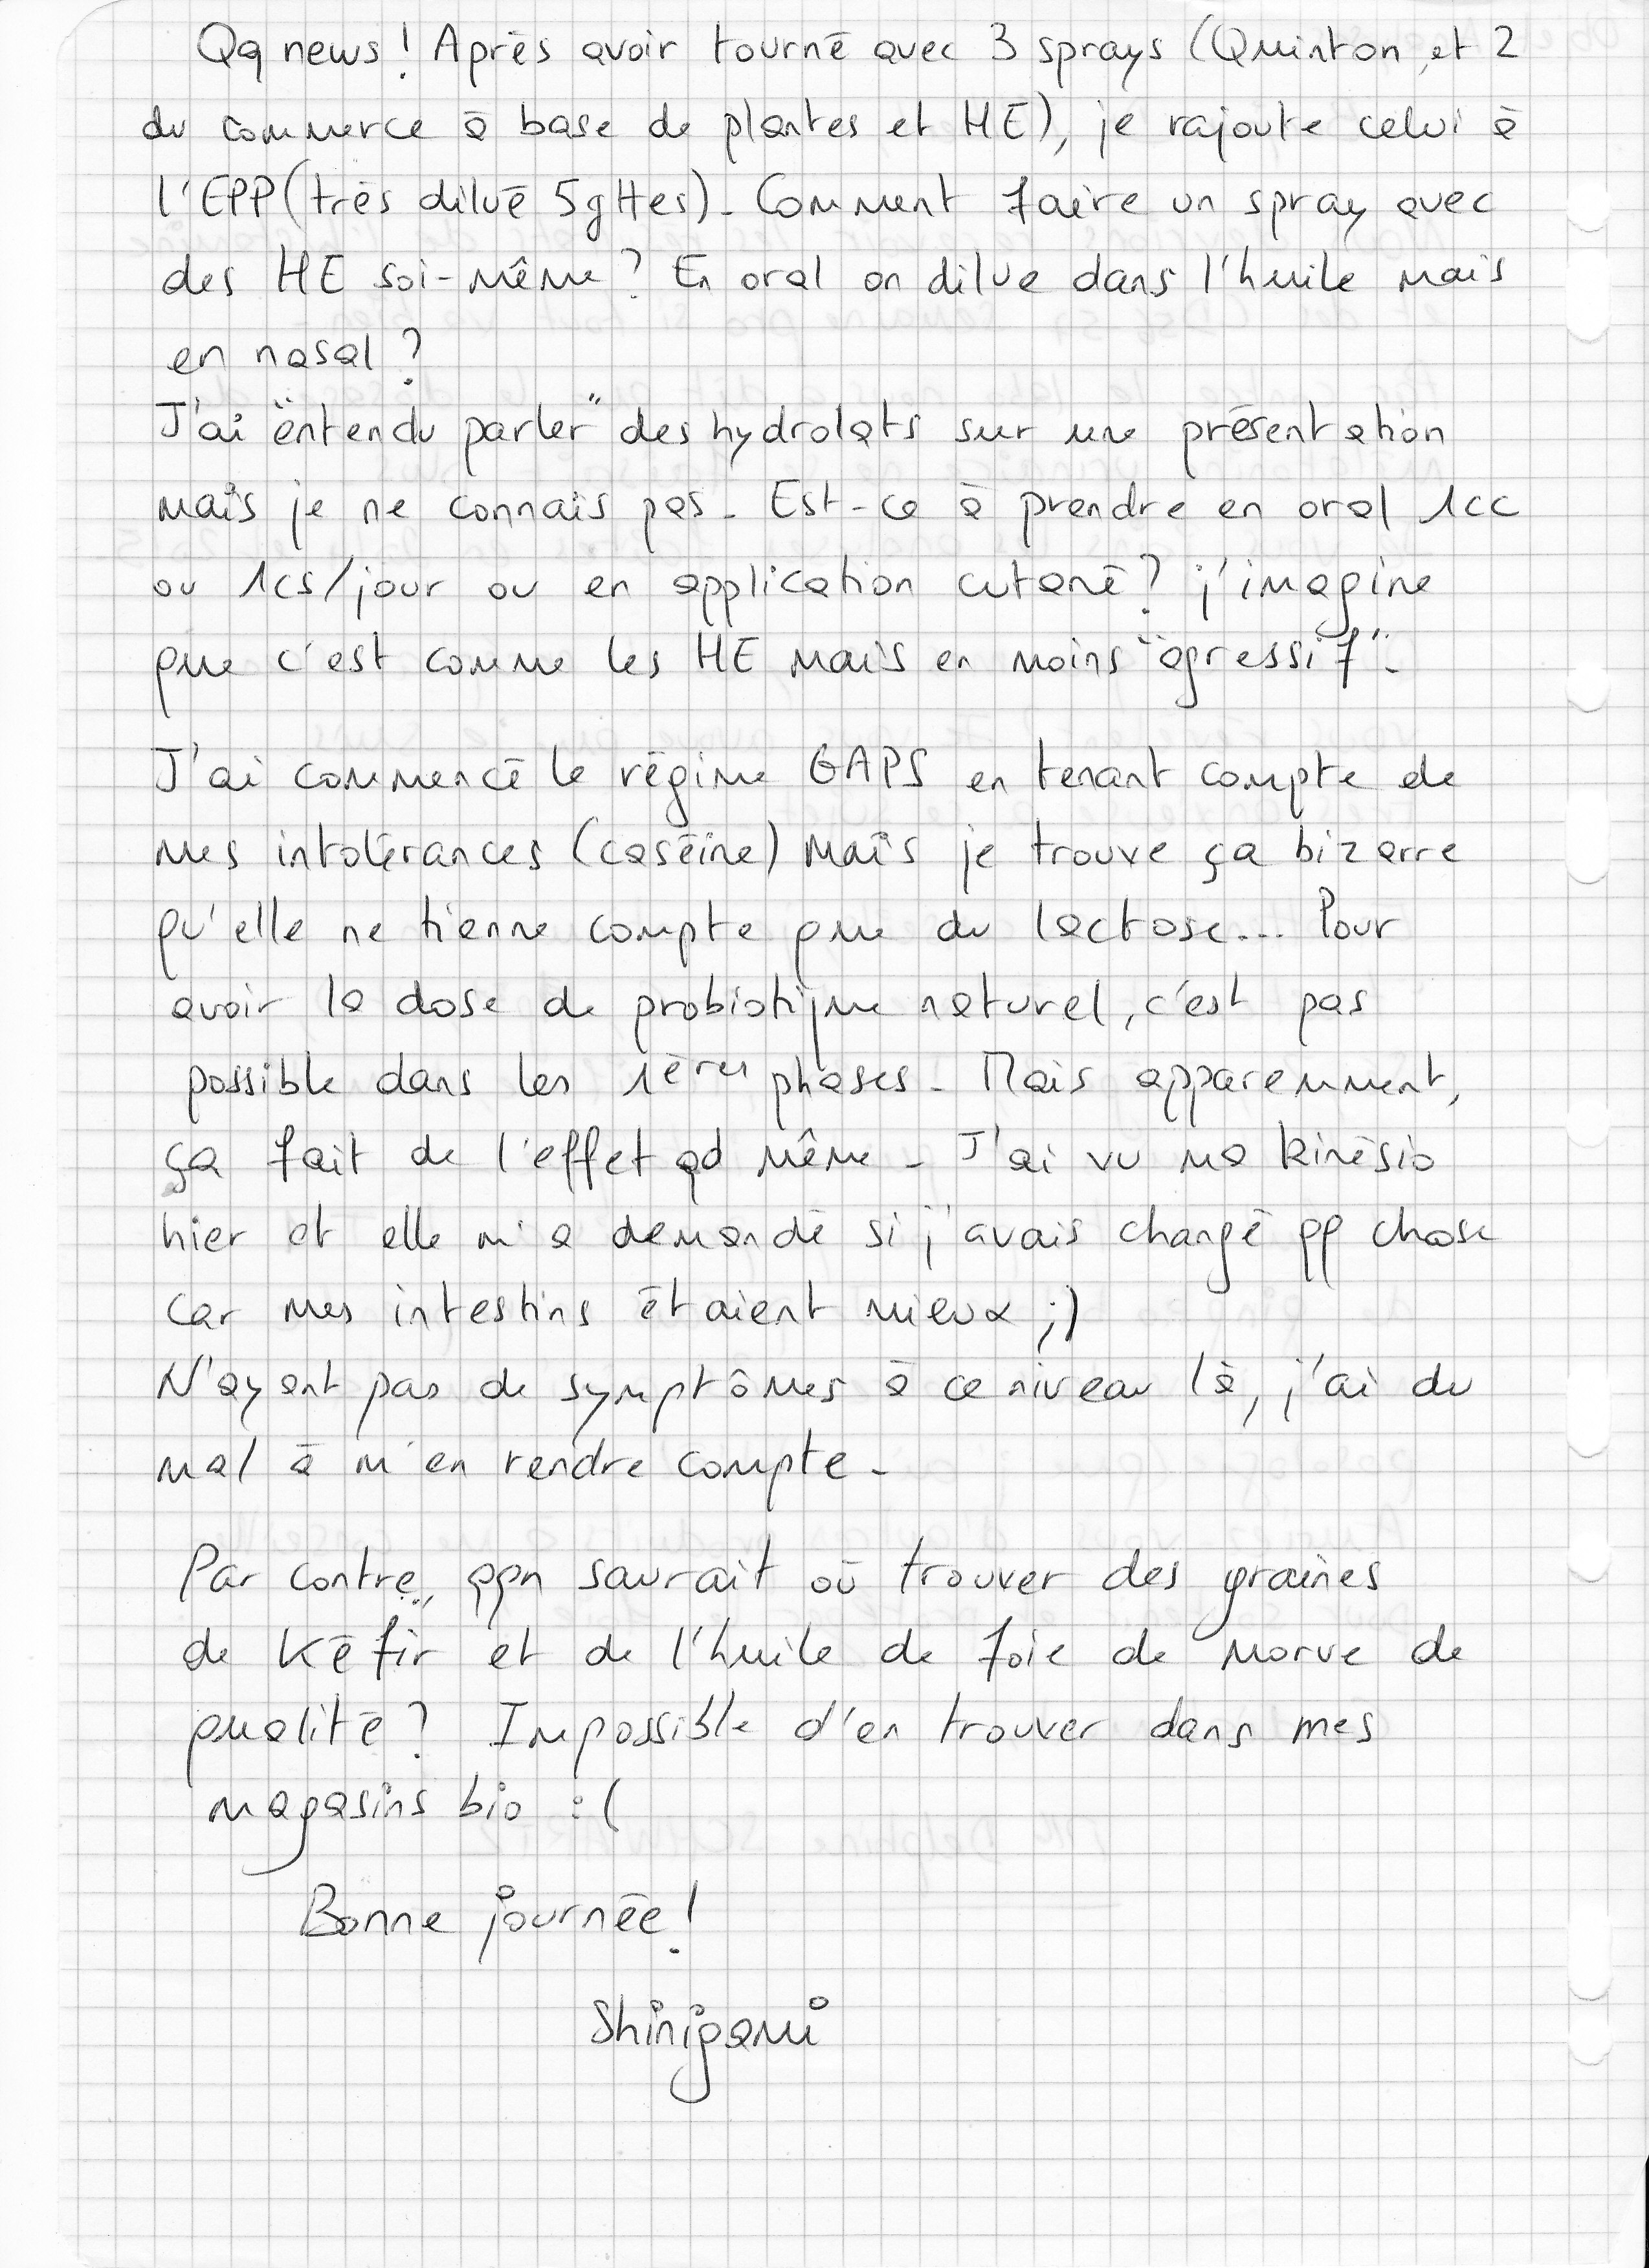 Qq news ! Après avoir tourné avec 3 sprays (Quinton, et 2
du commerce à base de plantes et HE), je rajoute celui à
l'EPP (très dilué 5 gttes). Comment faire un spray avec
des HE soi-même ? En oral on dilue dans l'huile mais
en nasal ?
J'ai "entendu parler" des hydrolats sur une présentation
mais je ne connais pas. Est-ce à prendre en oral 1cc
ou 1cs/jour ou en application cutané ? j'imagine
que c'est comme les HE mais en moins "agressif".
J'ai commencé le régime GAPS en tenant compte de
mes intolérances (caséine) mais je trouve ça bizarre
qu'elle ne tienne compte que du lactose... Pour
avoir la dose de probiotique naturel, c'est pas
possible dans les 1ères phases. Mais apparemment,
ça fait de l'effet qd même. J'ai vu ma kinésio
hier et elle m'a demandé si j'avais changé qq chose
car mes intestins étaient mieux ;)
N'ayant pas de symptômes à ce niveau là, j'ai du
mal à m'en rendre compte.
Par contre, qqn saurait où trouver des graines
de kéfir et de l'huile de foie de morue de
qualité ? Impossible d'en trouver dans mes
magasins bio :(
Bonne journée !
Shinigami